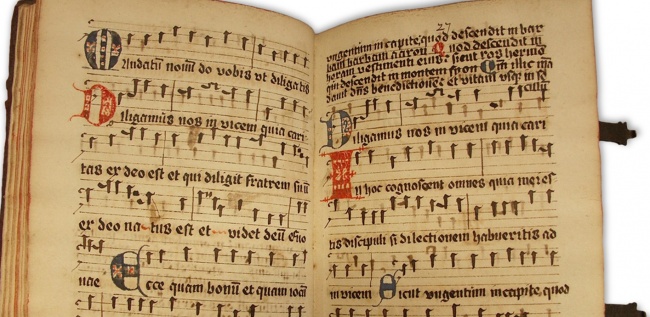 Mandatū novū do vobis vt diligatis
Diligamus nos in vicem quia cari
tas ex deo est et qui diligit fratrem suū
ex deo natus est et videt deū Euo
uae Ecce quam bonū et quam iocū
27
vngentum in capite, quod descendit in bar
bam barbam aaron Quod descendit in
horam vestimenti eius: sicut ros hermō
qui descendit in montem syon Qm̄ illic mā
dauit dn̄s benedictionē: et vitam vsq; in se
culū
Diligamus nos in vicem quia cari
In hoc cognoscent omnes quia mei es
tis discipuli si dilectionem habueritis ad
in vicem Sicut vngentum in capite, quod